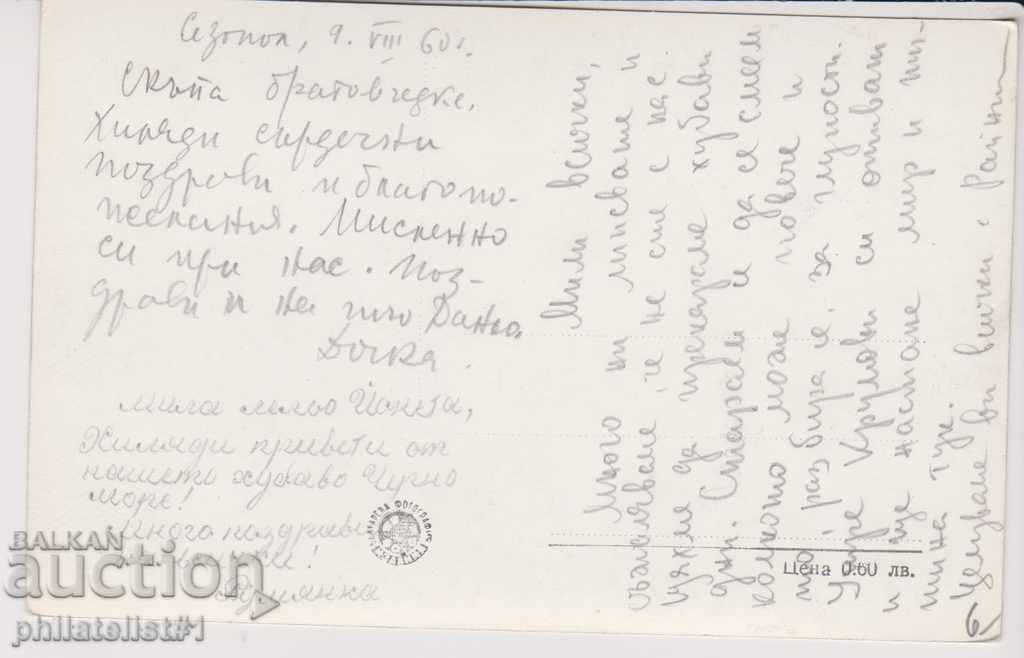 Созопол, 9. VIII 60 г.
Скъпа братовчедке,
Хиляди сърдечни
поздрави и благопо-
желания. Мислено
си при нас. Поз-
драви и на
Дочка.
мила лельо
Хиляди привети от
нашето хубаво Черно
море!
Много поздрави
Мили всички,
Много ни липсвате и
съжаляваме, че не сте с нас.
да прекараме хубави
дни. Стараем се да се смеем
колкото може повече и
то, разбира се, за глупости.
Утре Крумови си отиват
и ще настане мир и ти-
шина тук.
Целуваме ви всички
Цена 0.60 лв.
BALKAN
auction
philatelist#1